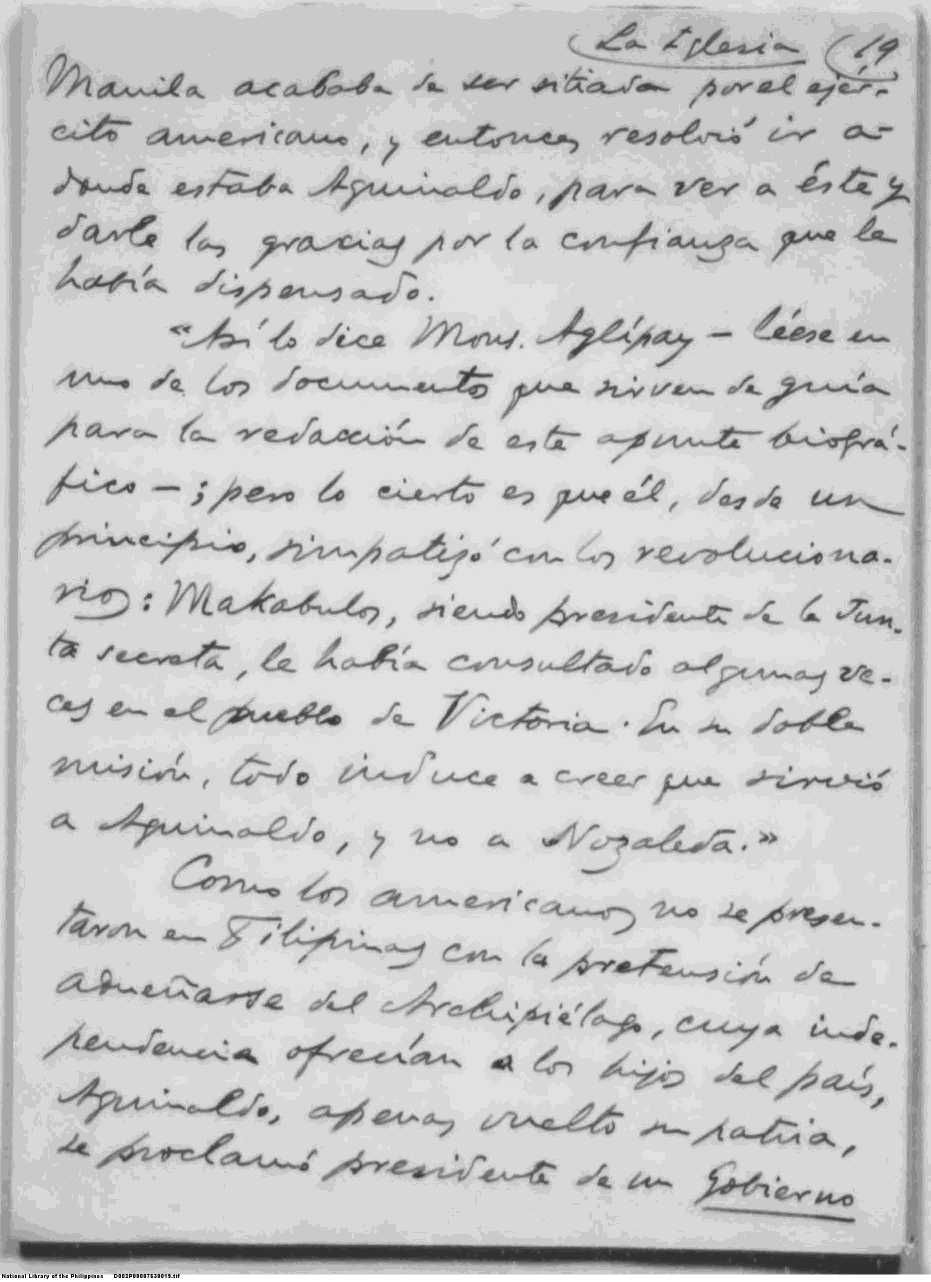 La Iglesia 19
Manila acababa de ser sitiada por el ejér-
cito americano, y entonces resolvió ir a-
donde estaba Aguinaldo, para ver a éste y
darle las gracias por la confianza que le
había dispensado.
"Así lo dice Mons. Aglípay – léese en
uno de los documentos que sirven de guía
para la redacción de este apunte biográ-
fico –; pero lo cierto es que él, desde un
principio, simpatizó con los revoluciona-
rios: Makabulos, siendo presidente de la Jun-
ta secreta, le había consultado algunas ve-
ces en el pueblo de Victoria. En su doble
misión, todo induce a creer que sirvió
a Aguinaldo, y no a Nozaleda."
Como los americanos no se presen-
taron en Filipinas con la pretensión de
adueñarse del Archipiélago, cuya inde-
pendencia ofrecían a los hijos del país,
Aguinaldo, apenas vuelto su patria,
se proclamó presidente de un Gobierno
National Library of the Philippines D002P00007639019.tif